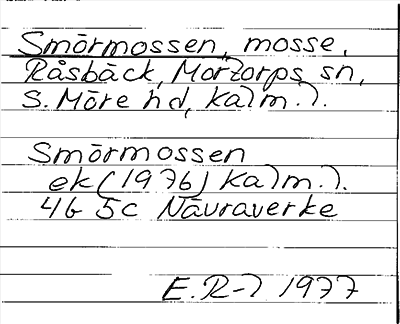 Smörmossen, mosse,
Råsbäck, Mortorps sn,
S. Möre hd, Kalm. l.
Smörmossen
ek (1976) Kalm. l.
4G 5c Nävraverke
E. R-l 1977